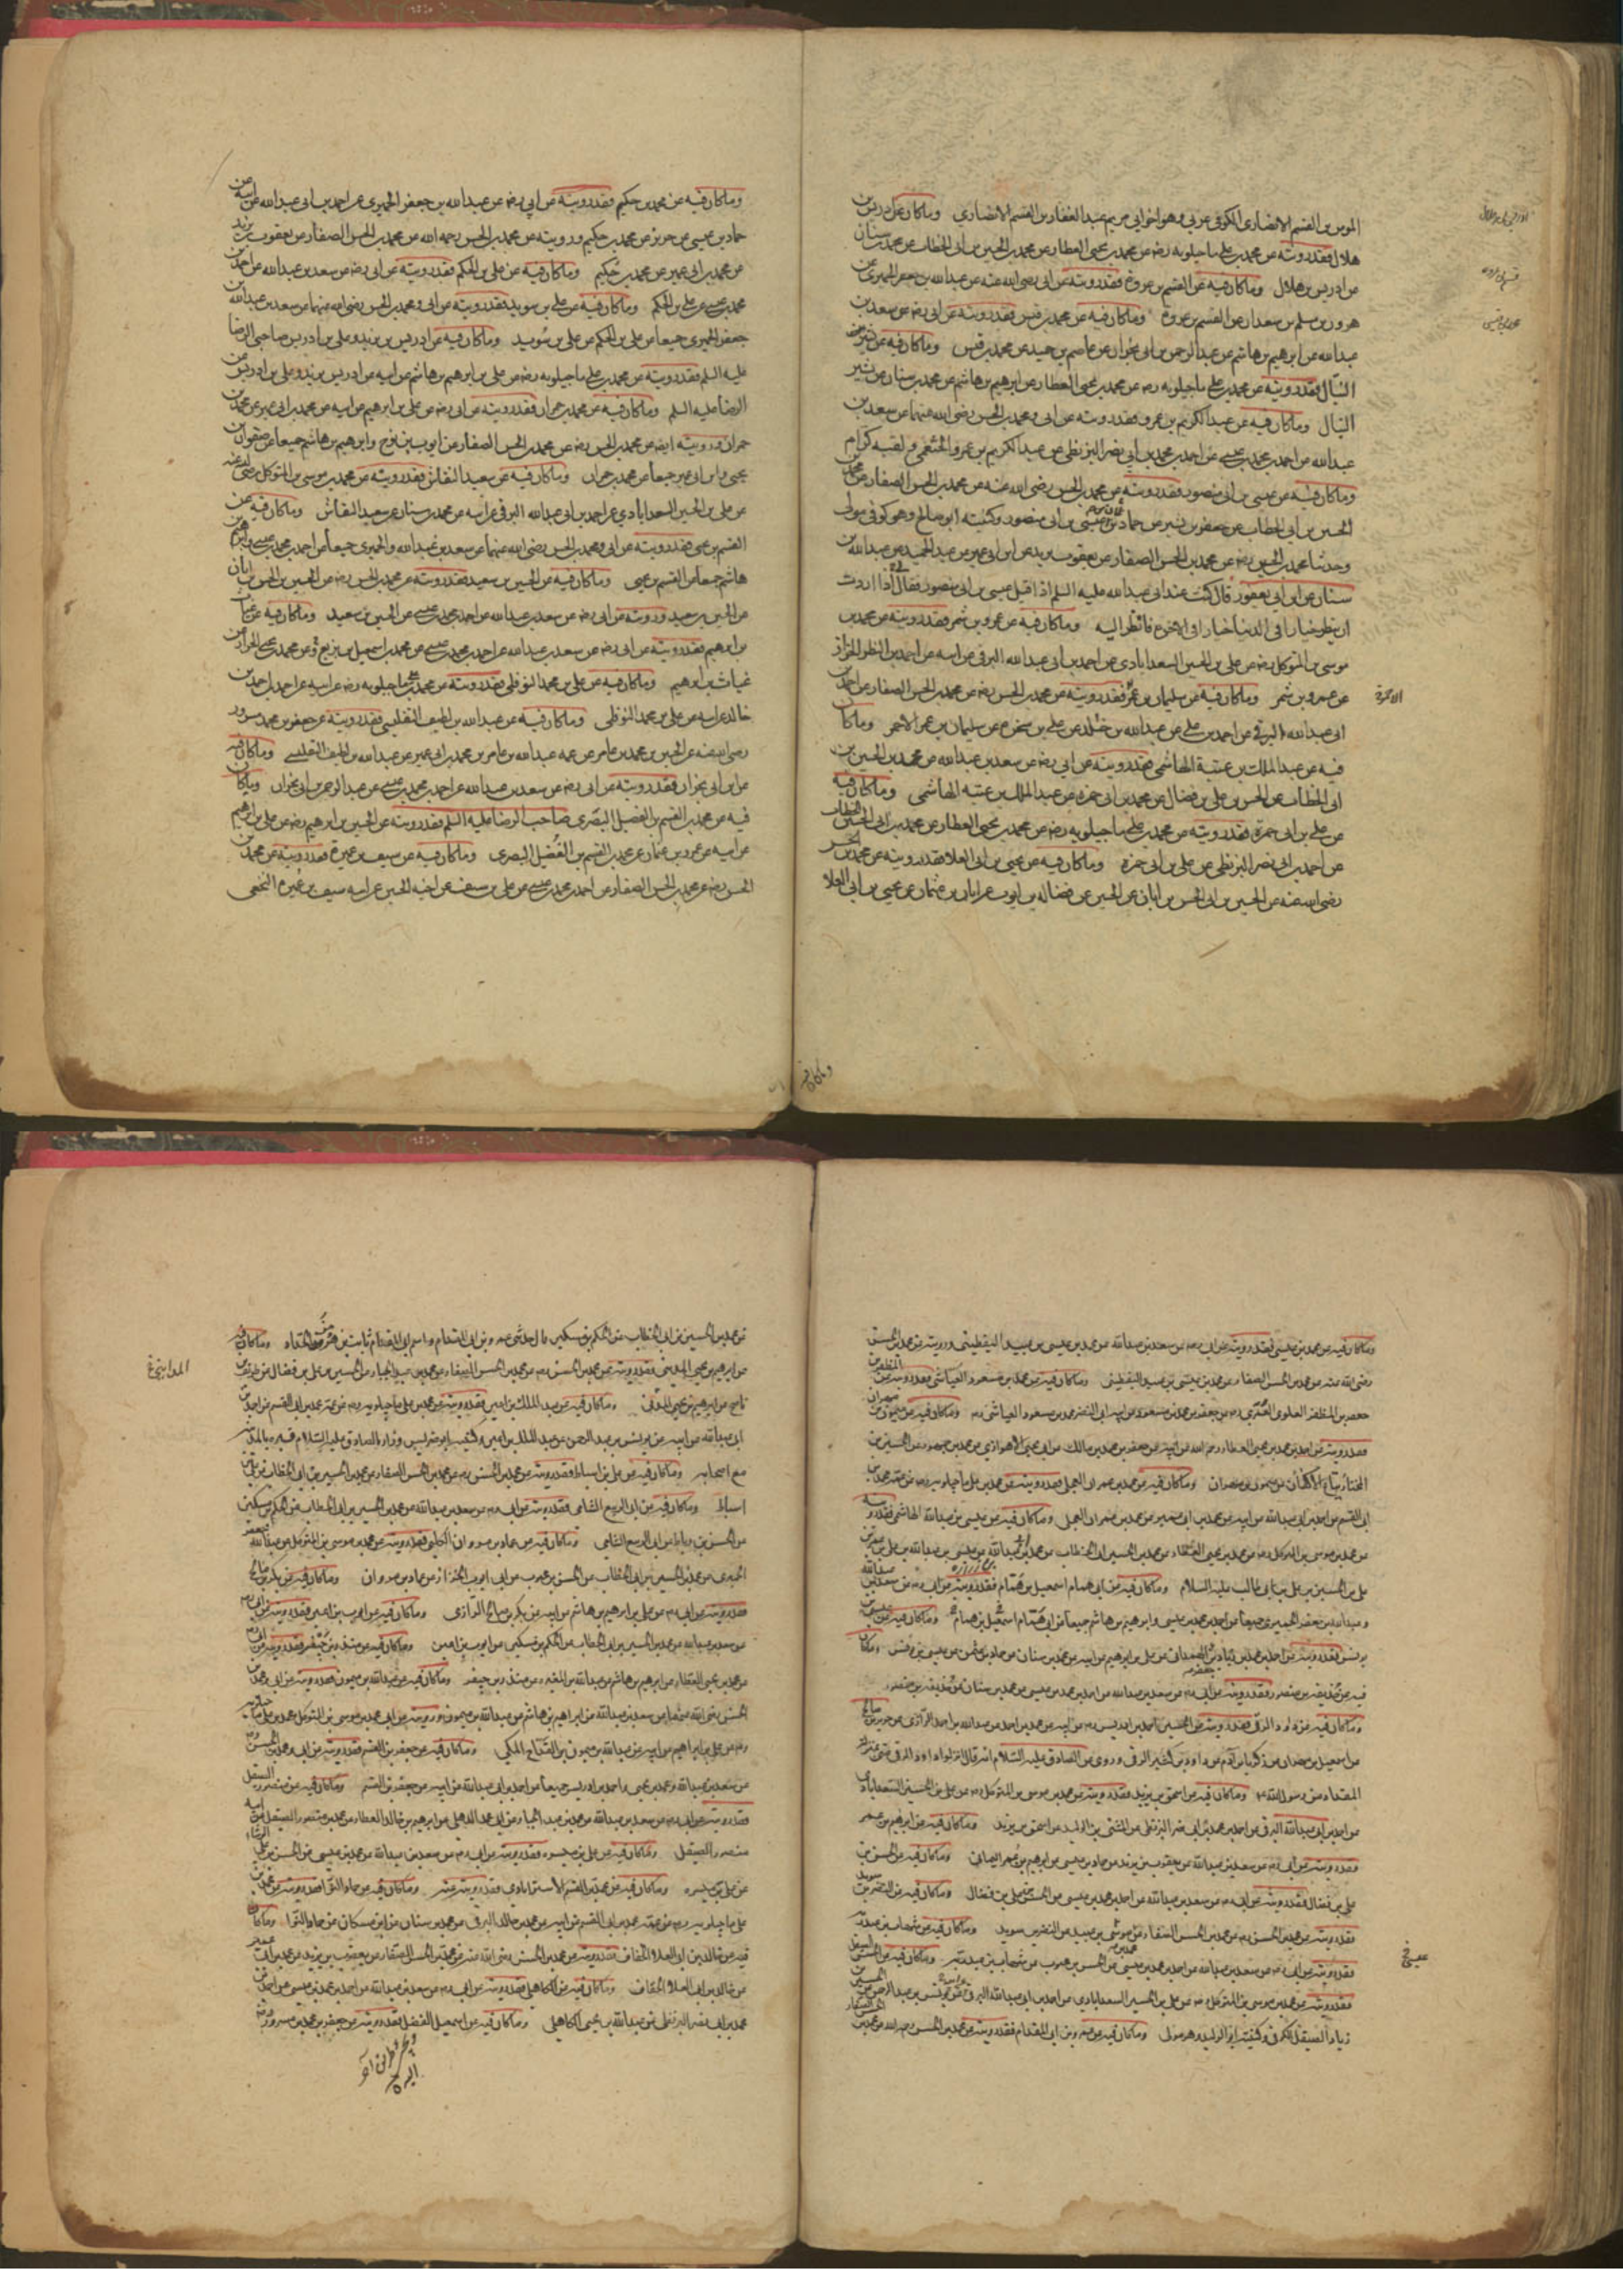 المومن بن القسم الانصاري الكوفي عربي وهو اخو ابي مريم عبد الغفار بن القسم الانصاري وما كان عن ادريس بن
هلال فقد رويته عن محمد بن علي ماجيلويه رضه عن محمد بن يحيى العطار عن محمد بن الحسين بن ابي الخطاب عن محمد بن سنان
عن ادريس بن هلال وما كان فيه عن القسم بن عروة فقد رويته عن ابي رضي الله عنه عن عبد الله بن جعفر الحميري عن
هرون بن مسلم بن سعدان عن القسم بن عروة وما كان فيه عن محمد بن قيس فقد رويته عن ابي رضه عن سعد بن
عبد الله عن ابرهيم بن هاشم عن عبد الرحمن بن ابي نجران عن عاصم بن حميد عن محمد بن قيس وما كان فيه عن بشير
النبال فقد رويته عن محمد بن علي ماجيلويه رضه عن محمد بن يحيى العطار عن ابرهيم بن هاشم عن محمد بن سنان عن بشير
النبال وما كان فيه عن عبد الكريم بن عمرو فقد رويته عن ابي ومحمد بن الحسن رضي الله عنهما عن سعد بن
عبد الله عن احمد بن محمد بن عيسى عن احمد بن محمد بن ابي نصر البزنطي عن عبد الكريم بن عمرو الخثعمي ولقبه كرام
وما كان فيه عن عيسى بن ابي منصور فقد رويته عن محمد بن الحسن رضي الله عنه عن محمد بن الحسن الصفار عن محمد بن
الحسين بن ابي الخطاب عن جعفر بن بشير عن حماد بن عيسى بن ابي منصور وكنيته ابو صالح وهو كوفي مولى
وحدثنا محمد بن الحسن رضه عن محمد بن الحسن الصفار عن يعقوب بن يزيد عن ابن ابي عمير عن عبد الحميد عن عبد الله بن
سنان عن ابن ابي يعفور قال كنت عند ابي عبد الله عليه السلم اذا اقبل عيسى بن ابي منصور فقال اذا اردت
ان ينظر خيارا في الدنيا خيارا في الاخرة فانظر اليه وما كان فيه عن عمرو بن شمر فقد رويته عن محمد بن
موسى بن المتوكل رضه عن علي بن الحسين السعدابادي عن احمد بن ابي عبد الله البرقي عن ابيه عن احمد بن النضر الخزاز
عن عمرو بن شمر وما كان فيه عن سليمان بن عمر فقد رويته عن محمد بن الحسن رضه عن محمد بن الحسن الصفار عن احمد بن
ابي عبد الله البرقي عن احمد بن علي عن عبد الله بن عن علي بن عن سليمان بن عمر الاحمر وما كان
فيه عن عبد الملك بن عتبة الهاشمي فقد رويته عن ابي رضه عن سعد بن عبد الله عن محمد بن الحسين بن
ابي الخطاب عن الحسن بن علي بن فضال عن محمد بن ابي حمزه عن عبد الملك بن عتبه الهاشمي وما كان فيه
عن علي بن ابي حمزة فقد رويته عن محمد بن علي ماجيلويه رضه عن محمد بن يحيى العطار عن محمد بن ابي الحسين الخطاب
عن احمد بن ابي نصر البزنطي عن علي بن ابي حمزه وما كان فيه عن يحيى بن ابي العلا فقد رويته عن محمد بن الحسن
رضي الله عنه عن الحسين بن ابي الحسن بن ابان عن الحسين عن فضاله بن ايوب عن ابان بن عثمان عن يحيى بن ابي العلا
وما كان فيه
وما كان فيه عن محمد بن حكيم فقد رويته عن ابي رضه عن عبد الله بن جعفر الحميري عن احمد بن ابي عبد الله عن ابيه عن
حماد بن عيسى عن حريز عن محمد بن حكيم ورويته عن محمد بن الحسن رحمه الله عن محمد بن الحسن الصفار عن يعقوب بن يزيد
عن محمد بن ابي عمير عن محمد بن حكيم وما كان فيه عن علي بن الحكم فقد رويته عن ابي رضه عن سعد بن عبد الله عن احمد بن
محمد بن عيسى عن علي بن الحكم وما كان فيه عن علي بن سويد فقد رويته عن ابي ومحمد بن الحسن رضي الله عنهما عن سعد بن عبد الله
جعفر الحميري جميعا عن علي بن الحكم عن علي بن سويد وما كان فيه عن ادريس بن يزيد وعلي بن ادريس صاحبي الرضا
عليه السلم فقد رويته عن محمد بن علي ماجيلويه رضه عن علي بن ابرهيم بن هاشم عن ابيه عن ادريس بن يزيد وعلي بن ادريس عن
الرضا عليه السلم وما كان فيه عن محمد بن حمران فقد رويته عن ابي رضه عن علي بن ابرهيم عن ابيه عن محمد بن ابي عمير عن محمد بن
حمران ورويته ايضه عن محمد بن الحسن رضه عن محمد بن الحسن الصفار عن ايوب بن نوح وابرهيم بن هاشم جميعا عن صفوان بن
يحيى وابن ابي عمير جميعا عن محمد بن حمران وما كان فيه عن سعيد النقاش فقد رويته عن محمد بن موسى بن المتوكل رضي الله عنه
عن علي بن الحسين السعدابادي عن احمد بن ابي عبد الله البرقي عن ابيه عن محمد بن سنان عن سعيد النقاش وما كان فيه عن
القسم بن يحيى فقد رويته عن ابي ومحمد بن الحسن رضي الله عنهما عن سعد بن عبد الله والحميري جميعا عن احمد بن محمد بن عيسى وابرهيم بن
هاشم جميعا عن القسم بن يحيى وما كان فيه عن الحسين بن سعيد فقد رويته عن محمد بن الحسن رضه عن الحسين بن الحسن بن ابان
عن الحسين بن سعيد ورويته عن ابي رضه عن سعد بن عبد الله عن احمد بن محمد بن عيسى عن الحسين بن سعيد وما كان فيه عن غياث
بن ابرهيم فقد رويته عن ابي رضه عن سعد بن عبد الله عن احمد بن محمد بن عيسى عن محمد بن اسمعيل بن بزيع وعن محمد بن يحيى الخزاز عن
غياث بن ابرهيم وما كان فيه عن علي بن محمد النوفلي فقد رويته عن محمد بن علي ماجيلويه رضه عن ابيه عن احمد بن
خالد عن ابيه عن علي بن محمد النوفلي وما كان فيه عن عبد الله بن لطيف التفليسي فقد رويته عن جعفر بن محمد بن مسرور
رضي الله عنه عن الحسين بن محمد بن عامر عن عمه عبد الله بن عامر عن محمد بن ابي عمير عن عبد الله بن لطيف التفليسي وما كان فيه
عن ابن ابي نجران فقد رويته عن ابي رضه عن سعد بن عبد الله عن احمد بن محمد بن عيسى عن عبد الرحمن بن ابي نجران وما كان
فيه عن محمد بن القسم بن الفضيل البصري صاحب الرضا عليه السلم فقد رويته عن الحسين بن ابرهيم رضه عن علي بن ابرهيم
عن ابيه عن عمرو بن عثمان عن محمد بن القسم بن الفضيل البصري وما كان فيه عن سيف بن عميرة فقد رويته عن محمد بن
الحسن رضه عن محمد بن الحسن الصفار عن احمد بن محمد بن عيسى عن علي بن سيف عن اخيه الحسين عن ابيه سيف بن عميرة النخعي
وما كان فيه عن محمد بن عيسى فقد رويته عن ابي رضه عن سعد بن عبد الله عن محمد بن عيسى بن عبيد اليقطيني ورويته عن محمد بن الحسن
رضي الله عنه عن محمد بن الحسن الصفار عن محمد بن عيسى بن عبيد اليقطيني وما كان فيه عن محمد بن مسعود العياشي فقد رويته عن المظفر بن
جعفر بن المظفر العلوي العمري رضه عن جعفر بن محمد بن مسعود عن ابيه ابي النضر محمد بن مسعود العياشي رضه وما كان فيه عن ميمون بن مهران
فقد رويته عن احمد بن محمد بن يحيى العطار رحمه الله عن ابيه عن جعفر بن محمد بن مالك عن ابي يحيى الاهوازي عن محمد بن جمهور عن الحسين بن
المختار بياع الاكفان عن ميمون بن مهران وما كان فيه عن محمد بن عمران العجلي فقد رويته عن محمد بن علي ماجيلويه رضه عن عمه محمد بن
ابي القسم عن احمد بن ابي عبد الله عن ابيه عن محمد بن ابي عمير عن محمد بن عمران العجلي وما كان فيه عن عيسى بن عبد الله الهاشمي فقد رويته
علي بن الحسين بن علي بن ابي طالب عليه السلام وما كان فيه عن ابي همام اسمعيل بن همام فقد رويته عن ابي رضه عن سعد بن عبد الله
وعبد الله بن جعفر الحميري جميعا عن احمد بن محمد بن عيسى وابرهيم بن هاشم جميعا عن ابي همام اسمعيل بن همام وما كان فيه عن عيسى بن
يونس فقد رويته عن احمد بن محمد بن زياد الهمداني عن علي بن ابرهيم عن ابيه عن محمد بن سنان عن حماد بن عثمن عن عيسى بن يونس وما كان
فيه عن حذيفه بن منصور فقد رويته عن ابي رضه عن سعد بن عبد الله عن احمد بن محمد بن عيسى عن محمد بن سنان عن حذيفه بن منصور
وما كان فيه عن داود الرقي فقد رويته عن الحسين بن احمد بن ادريس رضه عن ابيه عن محمد بن احمد عن عبد الله بن احمد الرازي عن حريز بن صالح
عن اسمعيل بن مهران عن زكريا بن آدم عن داود بن كثير الرقي وروى عن الصادق عليه السلام انه قال انزلوا داود الرقي مني بمنزلة
المقداد من رسول الله وما كان فيه عن اسحق بن يزيد فقد رويته عن محمد بن موسى بن المتوكل رضه عن علي بن الحسين السعدابادي
عن احمد بن ابي عبد الله البرقي عن احمد بن محمد بن ابي نصر البزنطي عن المثنى بن الوليد عن اسحق بن يزيد وما كان فيه عن ابرهيم بن عمر
فقد رويته عن ابي رضه عن سعد بن عبد الله عن يعقوب بن يزيد عن حماد بن عيسى عن ابرهيم بن عمر اليماني وما كان فيه عن الحسن بن
علي بن فضال فقد رويته عن ابي رضه عن سعد بن عبد الله عن احمد بن محمد بن عيسى عن الحسن بن علي بن فضال وما كان فيه عن النضر بن سويد
فقد رويته عن محمد بن الحسن رضه عن محمد بن الحسن الصفار عن محمد بن عيسى بن عبيد عن النضر بن سويد وما كان فيه عن شهاب بن عبد ربه
فقد رويته عن ابي رضه عن سعد بن عبد الله عن احمد بن محمد بن عيسى عن الحسن بن محبوب عن شهاب بن عبد ربه وما كان فيه عن الحسن
فقد رويته عن محمد بن موسى بن المتوكل رضه عن علي بن الحسين السعدابادي عن احمد بن ابي عبد الله البرقي عن يونس بن عبد الرحمن عن الحسن بن
زياد الصيقل الكوفي وكنيته ابو الوليد وهو مولى وما كان فيه عن عمرو بن ابي المقدام فقد رويته عن محمد بن الحسن رحمه الله عن محمد بن الحسن الصفار
عن محمد بن الحسين بن ابي الخطاب عن الحكم بن مسكين قال حدثني عمرو بن ابي المقدام واسم ابي المقدام ثابت بن هرمز الحداد وما كان فيه
عن ابرهيم بن ابي يحيى المدايني فقد رويته عن محمد بن الحسن رضه عن محمد بن الحسن الصفار عن محمد بن عبد الجبار عن الحسن بن علي بن فضال عن ظريف بن
ناصح عن ابرهيم بن يحيى المدني وما كان فيه عن عبد الملك بن اعين فقد رويته عن محمد بن علي ماجيلويه رضه عن عمه محمد بن ابي القسم عن احمد بن
ابي عبد الله عن ابيه عن يونس بن عبد الرحمن عن عبد الملك بن اعين وكنيته ابو ضريس وزار الصادق عليه السلام قبره بالمدينة
مع اصحابه وما كان فيه عن علي بن اسباط فقد رويته عن محمد بن الحسن رضه عن محمد بن الحسن الصفار عن محمد بن الحسين بن ابي الخطاب عن علي بن
اسباط وما كان فيه عن ابي الربيع الشامي فقد رويته عن ابي رضه عن سعد بن عبد الله عن محمد بن الحسين بن ابي الخطاب عن الحكم بن مسكين
عن الحسن بن رباط عن ابي الربيع الشامي وما كان فيه عن عمار بن مروان الكلبي فقد رويته عن محمد بن موسى بن المتوكل عن عبد الله بن جعفر
الحميري عن محمد بن الحسين بن ابي الخطاب عن الحسن بن محبوب عن ابي ايوب الخزاز عن عمار بن مروان وما كان فيه عن بكر بن صالح
فقد رويته عن ابي رضه عن علي بن ابرهيم بن هاشم عن ابيه عن بكر بن صالح الرازي وما كان فيه عن ايوب بن اعين فقد رويته عن ابي رضه
عن سعد بن عبد الله عن محمد بن الحسين بن ابي الخطاب عن الحكم بن مسكين عن ايوب بن اعين وما كان فيه عن منذر بن جيفر فقد رويته عن ابي رضه
عن محمد بن يحيى العطار عن ابرهيم بن هاشم عن عبد الله بن المغيره عن منذر بن جيفر وما كان فيه عن عبد الله بن ميمون فقد رويته عن ابي ومحمد بن
الحسن رضي الله عنهما عن سعد بن عبد الله عن ابراهيم بن هاشم عن عبد الله بن ميمون ورويته عن ابي محمد بن موسى بن المتوكل محمد بن علي ماجيلويه
رضه عن علي بن ابراهيم عن ابيه عن عبد الله بن ميمون القداح المكي وما كان فيه عن جعفر بن القسم فقد رويته عن ابي ومحمد بن الحسن رضه
عن سعد بن عبد الله ومحمد بن يحيى واحمد بن ادريس جميعا عن احمد بن ابي عبد الله عن ابيه عن جعفر بن القسم وما كان فيه عن منصور الصيقل
فقد رويته عن ابي رضه عن سعد بن عبد الله عن محمد بن عبد الجبار عن ابي محمد الذهلي عن ابرهيم بن خالد العطار عن محمد بن منصور الصيقل عن ابيه
منصور الصيقل وما كان فيه عن علي بن ميسره فقد رويته عن ابي رضه عن سعد بن عبد الله عن محمد بن عيسى عن الحسن بن علي الوشا
عن علي بن ميسره وما كان فيه عن محمد بن القسم الاسترابادي فقد رويته عنه وما كان فيه عن حماد النوا فقد رويته عن محمد بن
علي ماجيلويه رضه عن عمه محمد بن ابي القسم عن ابيه عن محمد بن خالد البرقي عن محمد بن سنان عن ابن مسكان عن حماد النوا وما كان
فيه عن خالد بن ابي العلا الخفاف فقد رويته عن محمد بن الحسن رضي الله عنه عن محمد بن الحسن الصفار عن يعقوب بن يزيد عن محمد بن ابي عمير
عن خالد بن ابي العلا الخفاف وما كان فيه عن الكاهلي فقد رويته عن ابي رضه عن سعد بن عبد الله عن احمد بن محمد بن عيسى عن احمد بن
محمد بن ابي نصر البزنطي عن عبد الله بن يحيى الكاهلي وما كان فيه عن اسمعيل الفضل فقد رويته عن جعفر بن محمد بن مسرور رضه